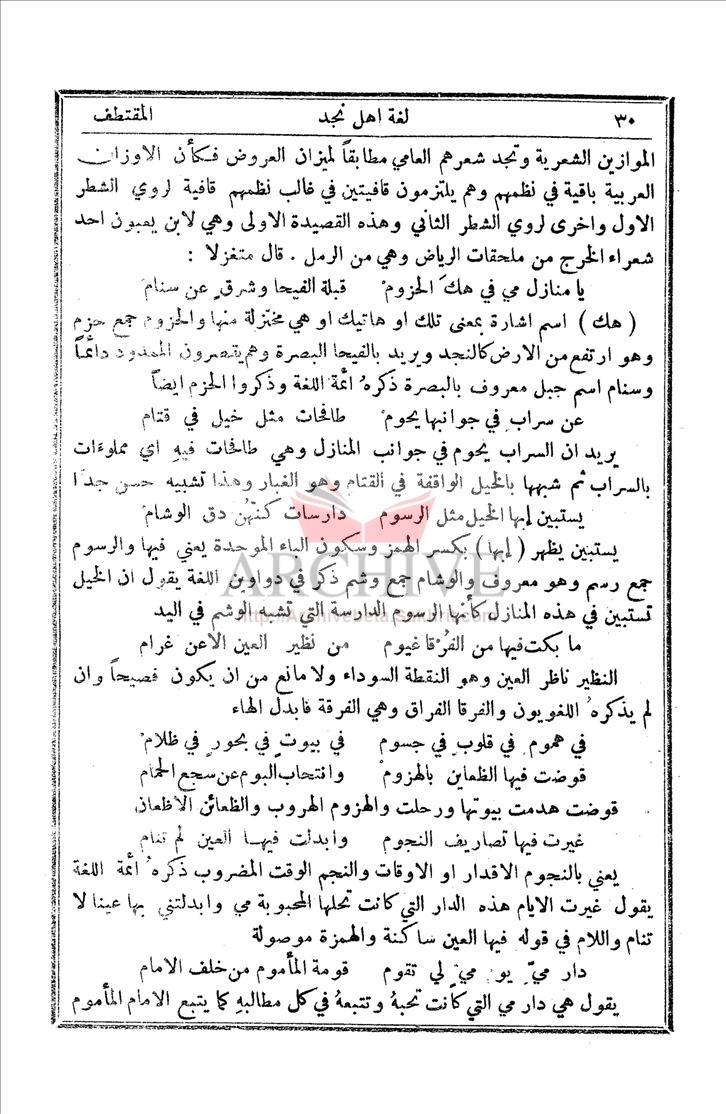 ٣٠ لغة اهل نجد المقتطف
الموازين الشعرية وتجد شعرهم العامي مطابقاً لميزان العروض فكأن الاوزان
العربية باقية في نظمهم وهم يلتزمون قافيتين في غالب نظمهم قافية لروي الشطر
الاول واخرى لروي الشطر الثاني وهذه القصيدة الاولى وهي لابن يعبون احد
شعراء الخرج من ملحقات الرياض وهي من الرمل . قال متغزلا :
يا منازل مي في هك الحزومْ قبلة الفيحا وشرقٍ عن سنام
( هك ) اسم اشارة بمعنى تلك او هاتيك او هي مختزلة منها والحزوم جمع حزم
وهو ارتفع من الارض كالنجد ويريد بالفيحا البصرة وهم يقصرون الممدود دائماً
وسنام اسم جبل معروف بالبصرة ذكرهُ ائمة اللغة وذكروا الحزم ايضاً
عن سرابٍ في جوانبها يحومْ طالحات مثل خيل في قتام
يريد ان السراب يحوم في جوانب المنازل وهي طالحات فيهِ اي مملوءات
بالسراب ثم شبهها بالخيل الواقفة في القتام وهو الغبار وهذا تشبيه حسن جدًا
يستبين إبها الخيل مثل الرسوم دارسات كنّهن دق الوشام
يستبين يظهر ( إبها ) بكسر الهمز وسكون الباء الموحدة يعني فيها والرسوم
جمع رسم وهو معروف والوشام جمع وشم ذكر في دواوين اللغة يقول ان الخيل
تستبين في هذه المنازل كأنها الرسوم الدارسة التي تشبه الوشم في اليد
ARCHIVE
ما بكت فيها من الفُرْقا غيوم من نظير العين الا عن غرام
النظير ناظر العين وهو النقطة السوداء ولا مانع من ان يكون فصيحاً وان
لم يذكرهُ اللغويون والفرقا الفراق وهي الفرقة فابدل الهاء
في همومٍ في قلوبٍ في جسوم في بيوتٍ في بحورٍ في ظلامْ
قوضت فيها الظعاين بالهزومْ وانتحاب البوم عن سجع الحمام
قوضت هدمت بيوتها ورحلت والهزوم الهروب والظعائن الاظعان
غيرت فيها تصاريف النجوم وابدلت فيها العين لم تنام
يعني بالنجوم الاقدار او الاوقات والنجم الوقت المضروب ذكرهُ ائمة اللغة
يقول غيرت الايام هذه الدار التي كانت تحلها المحبوبة مي وابدلتني بها عينا لا
تنام واللام في قوله فيها العين ساكنة والهمزة موصولة
دار ميّ يوم ميّ لي تقوم قومة المأموم من خلف الامام
يقول هي دار مي التي كانت تحبهُ وتتبعهُ في كل مطالبهِ كما يتبع الامام المأموم